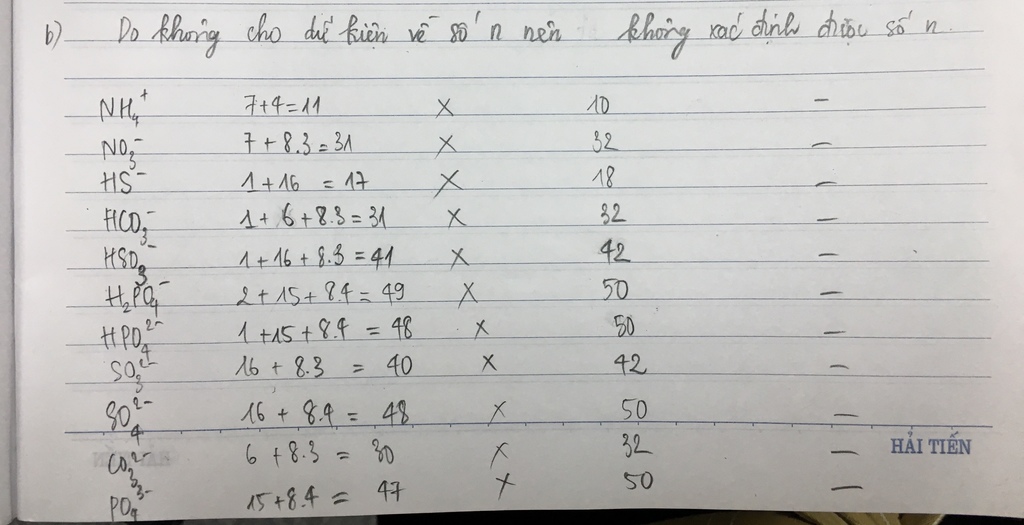 b) Do không cho dữ kiện về số n nên không xác định được số n.
NH₄⁺ 7+4=11 × 10 –
NO₃⁻ 7+8.3=31 × 32 –
HS⁻ 1+16 = 17 × 18 –
HCO₃⁻ 1+6+8.3=31 × 32 –
HSO₃⁻ 1+16+8.3=41 × 42 –
H₂PO₄⁻ 2+15+8.4=49 × 50 –
HPO₄²⁻ 1+15+8.4 = 48 × 50 –
SO₃²⁻ 16+8.3 = 40 × 42 –
SO₄²⁻ 16+8.4 = 48 × 50 –
HẢI TIẾN
CO₃²⁻ 6+8.3 = 30 × 32 –
PO₄³⁻ 15+8.4 = 47 × 50 –